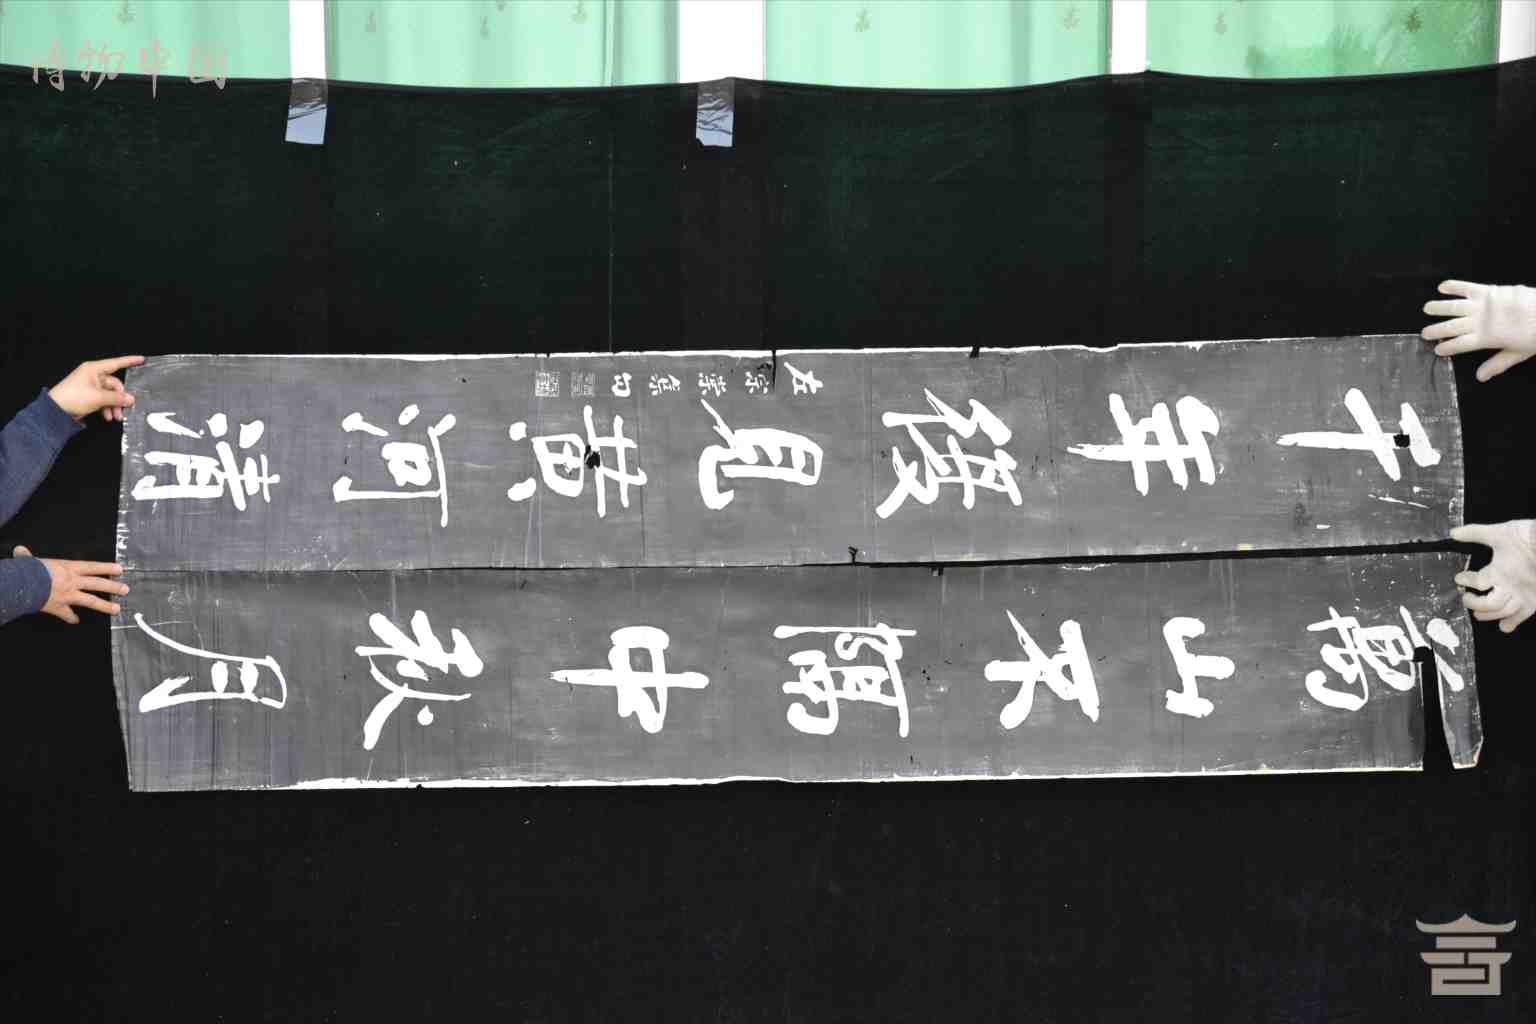 博物中国
萬山不隔中秋月
千年復見黄河清
左宗棠